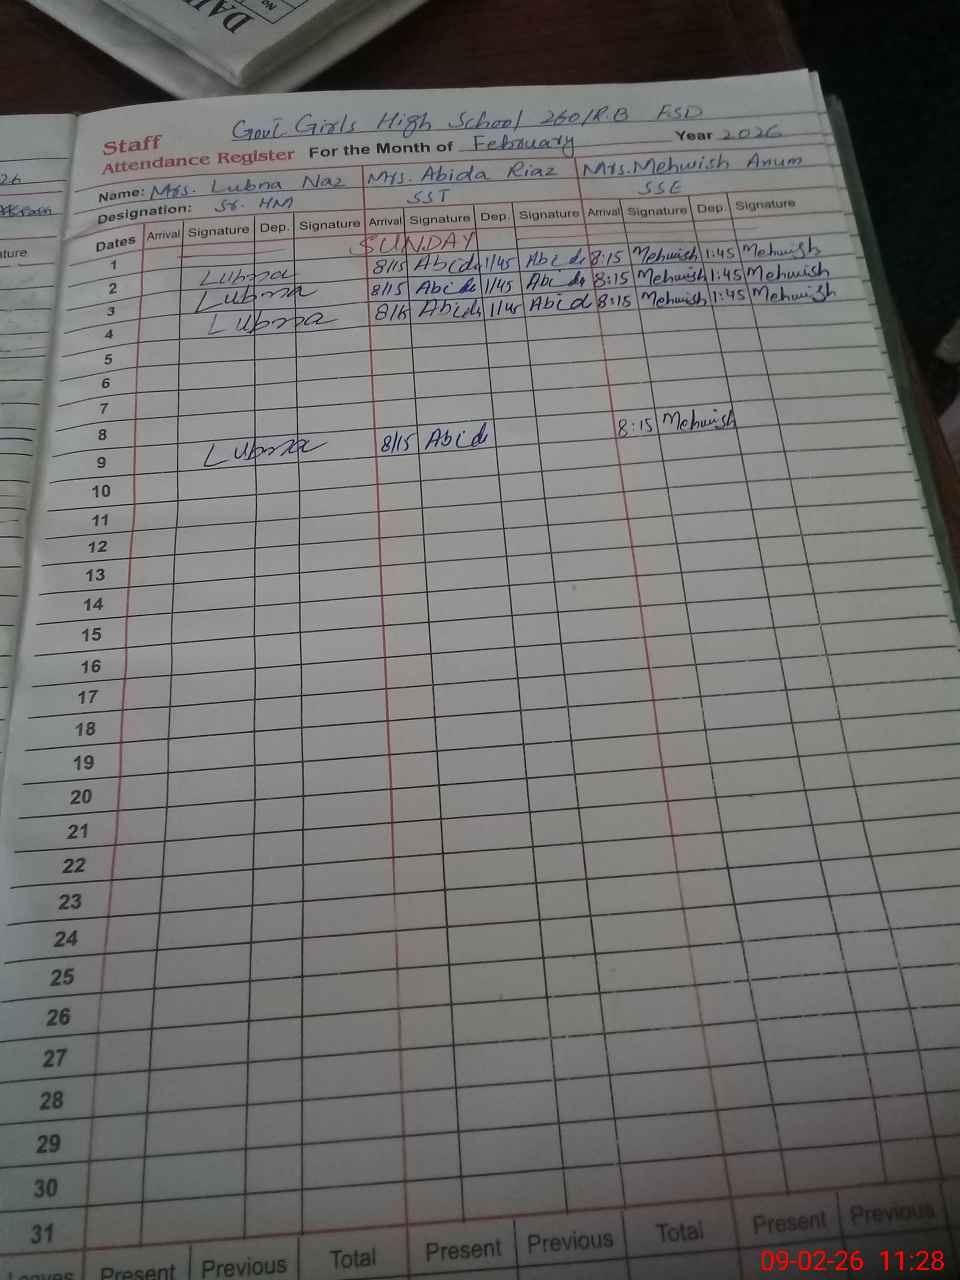 DAI
No
Govt. Girls High School 260/R.B FSD
Staff
Attendance Register For the Month of February Year 2026
26
Name: Mrs. Lubna Naz Mrs. Abida Riaz Mrs. Mehwish Anum
Designation: Sr. HM SST SSE
ture
Dates Arrival Signature Dep. Signature Arrival Signature Dep. Signature Arrival Signature Dep. Signature
1 SUNDAY
2 Lubna 8/15 Abida 1/45 Abida 8:15 Mehwish 1:45 Mehwish
3 Lubna 8/15 Abida 1/45 Abida 8:15 Mehwish 1:45 Mehwish
4 Lubna 8/15 Abida 1/45 Abida 8:15 Mehwish 1:45 Mehwish
5
6
7
8
9 Lubna 8/15 Abida 8:15 Mehwish
10
11
12
13
14
15
16
17
18
19
20
21
22
23
24
25
26
27
28
29
30
31
Leaves Present Previous Total Present Previous Total Present Previous
09-02-26 11:28